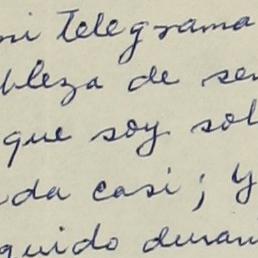 mi telegrama
bleza de ser
que soy sol
da casi; y
guido duran